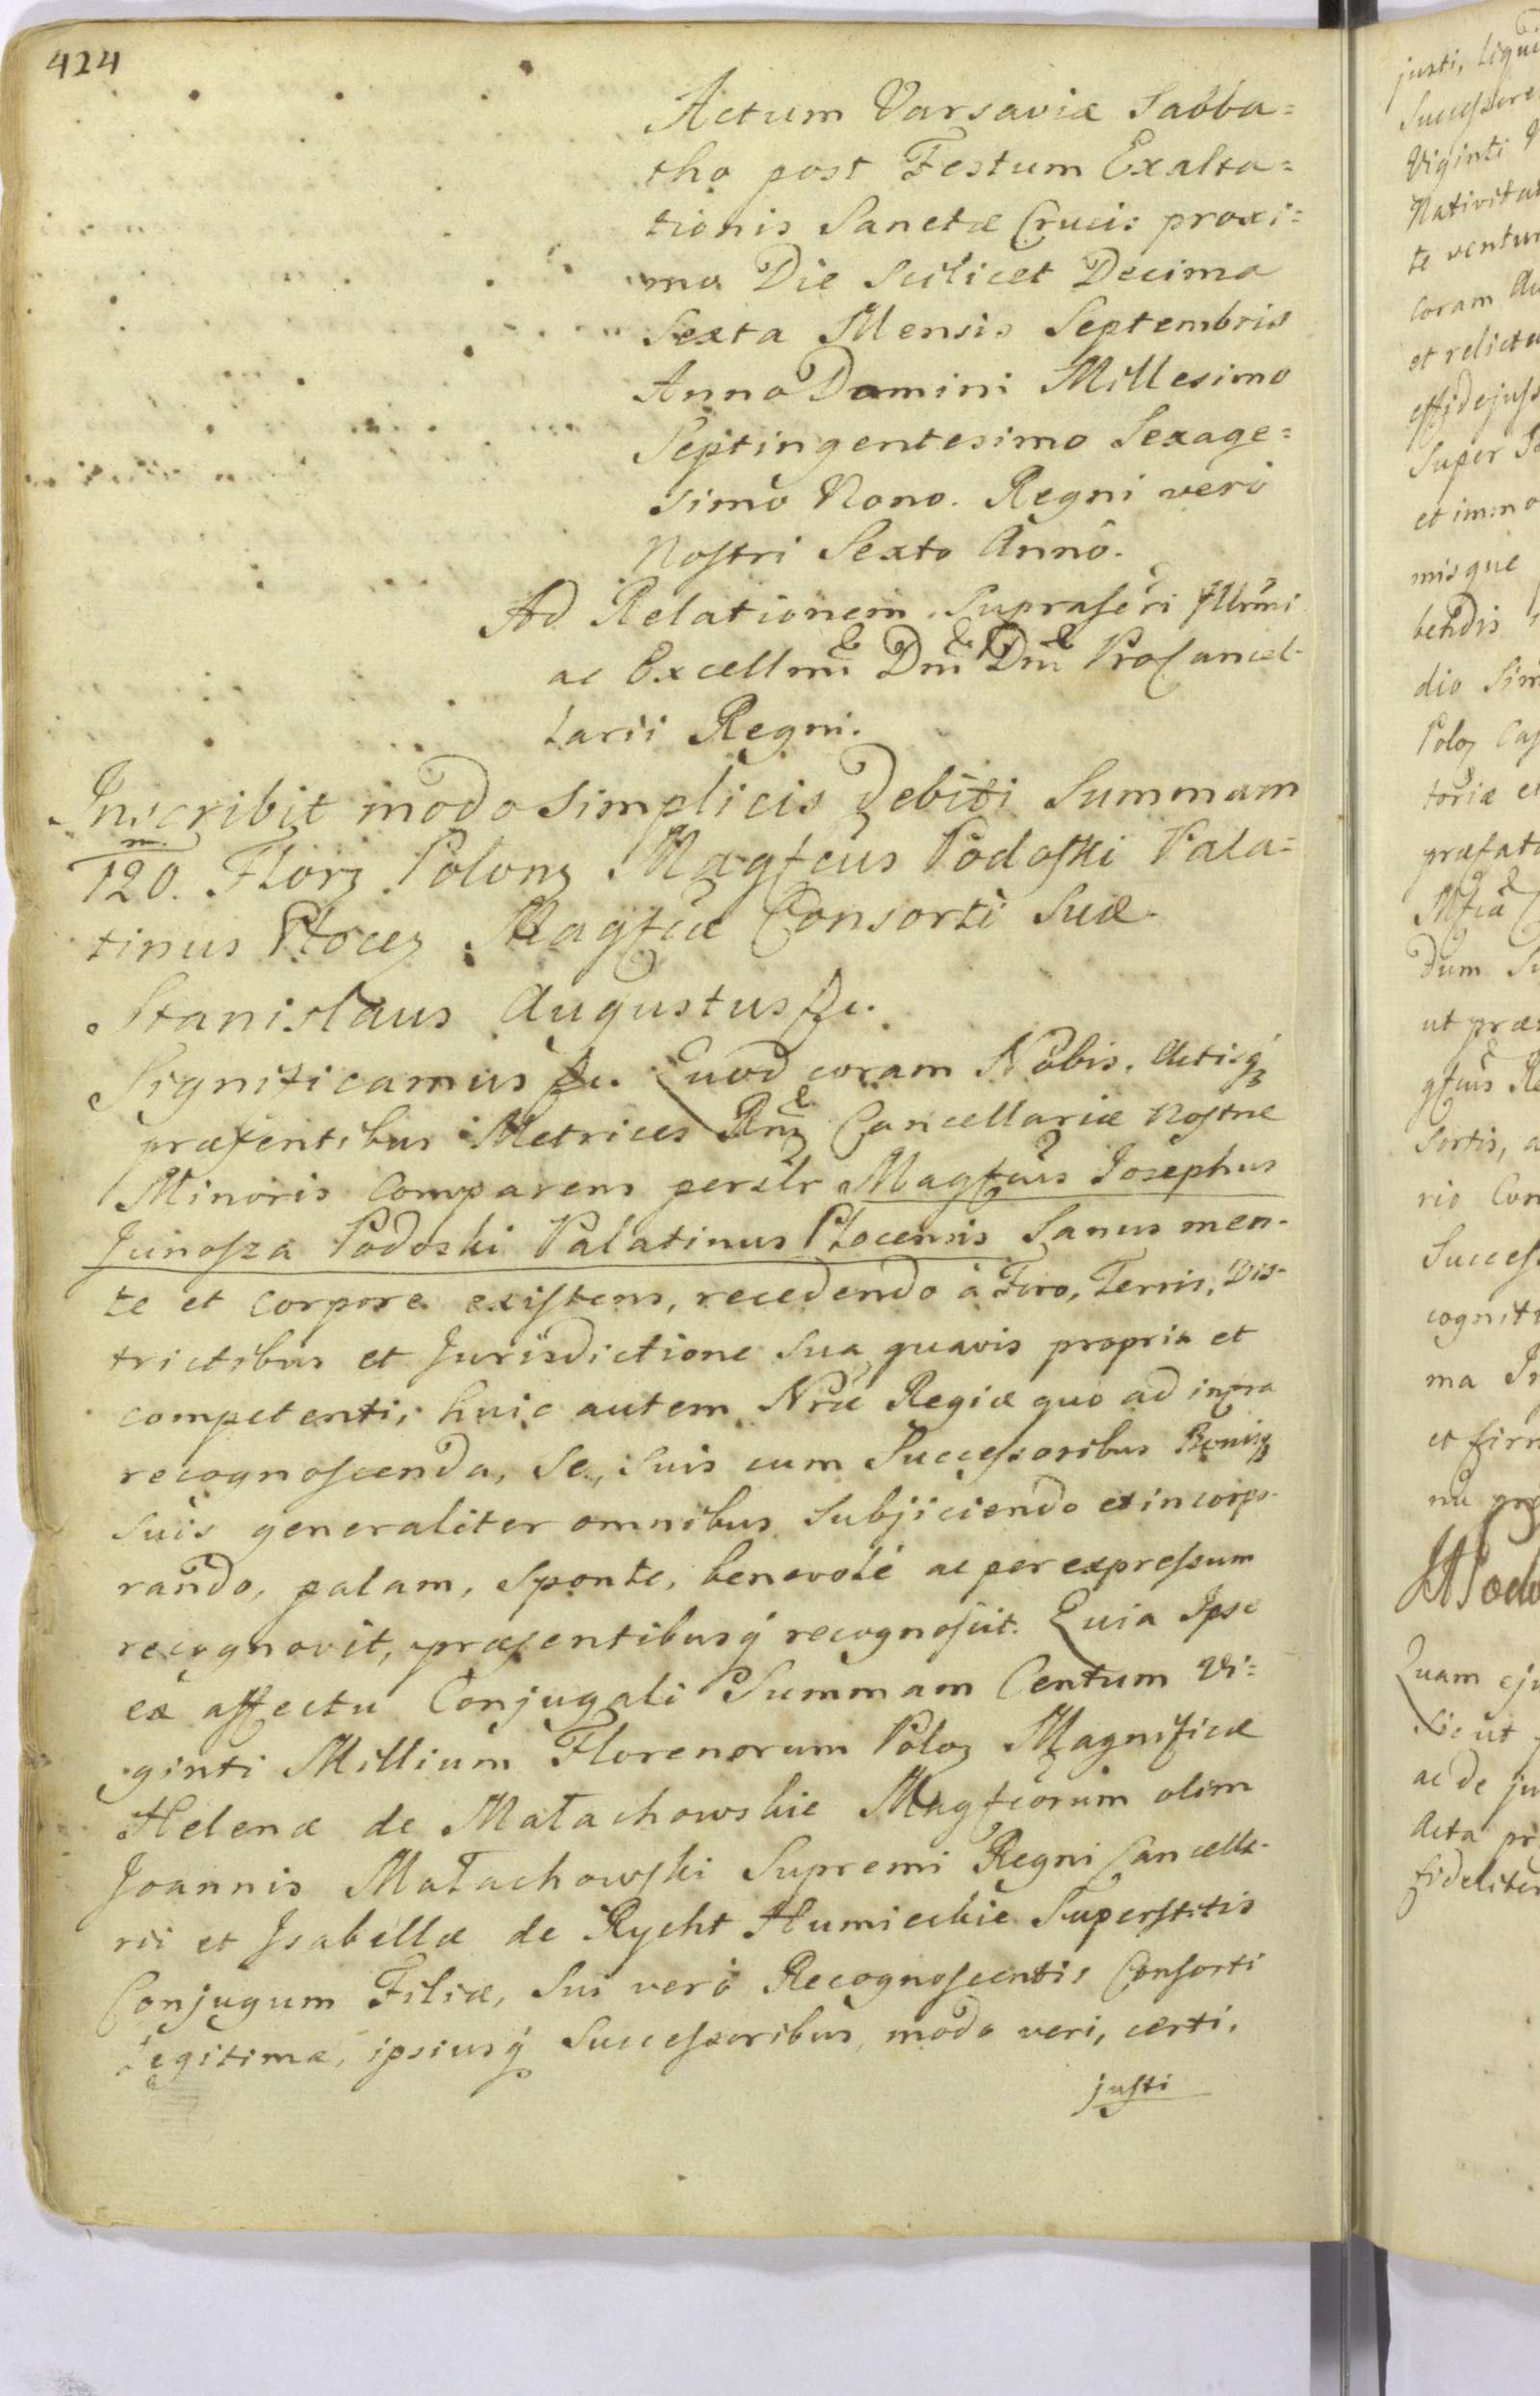 424
Actum Varsaviæ Sabba=
tho post Festum Exalta=
tionis Sanctæ Crucis proxi=
mo Die Scilicet Decima
Sexta Mensis Septembris
Anno Domini Millesimo
Septingentesimo Sexage=
simo Nono. Regni verò
Nostri Sexto Annô.
Ad Relationem Suprascri Illrmi
ac Excellmi Dni Dni ProCancel-
larii Regni.
Inscribit modo Simplicis debiti Summam
m
120. Florz Polonz Magfcus Podoski Pala=
tinus Plocez Magfcæ Consorti Suæ.
Stanislaus Augustus &c.
Significamus &c. Quod coram Nobis, Actisq
præsentibus Metrices Rnz Cancellariæ Nostræ
Minoris Comparens persлr Magfcus Josephus
Junosza Podoski Palatinus Plocensis Sanus men-
te et corpore existens, recedendo à Foro, Terris, Dis-
trictibus et Jurisdictione Sua quavis propria et
competenti, huic autem Nræ Regiæ quo ad infra
recognoscenda, Se, Suis cum Successoribus Bonisq
Suis generaliter omnibus Subjiciendo et incorpo-
rando, palam, Sponte, benevolè ac per expressum
recognovit, præsentibusq recognoscit. Quia Ipse
ex affectu Conjugali Summam Centum Vi=
ginti Millium Florenorum Poloz Magnificæ
Helenæ de Małachowskie Magfcorum olim
Joannis Małachowski Supremi Regni Cancella-
rii et Isabellæ de Rycht Humieckie Superstitis
Conjugum Filiæ, Sui verò Recognoscentis Consorti
Legitimæ, ipsiusq Successoribus, modo veri, certi,
justi
justi, liqui
Successore
Viginti
Nativitat
te ventur
coram
et relictu
Super
et immo
misque
bendis
dio Sim
Poloz Cap
toriæ et
præfata
dum
ut præ
Sortis, a
rio Con
Success
cognit
ma
et firm
Quam eju
Sicut
ac de ju
Acta pr
fideliter